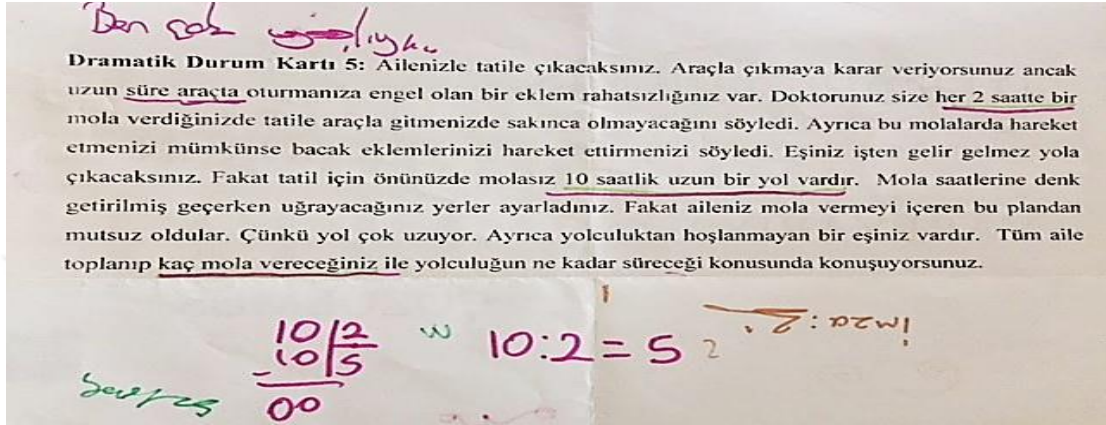 Ben çok
Dramatik Durum Kartı 5: Ailenizle tatile çıkacaksınız. Araçla çıkmaya karar veriyorsunuz ancak
uzun süre araçta oturmanıza engel olan bir eklem rahatsızlığınız var. Doktorunuz size her 2 saatte bir
mola verdiğinizde tatile araçla gitmenizde sakınca olmayacağını söyledi. Ayrıca bu molalarda hareket
etmenizi mümkünse bacak eklemlerinizi hareket ettirmenizi söyledi. Eşiniz işten gelir gelmez yola
çıkacaksınız. Fakat tatil için önünüzde molasız 10 saatlik uzun bir yol vardır. Mola saatlerine denk
getirilmiş geçerken uğrayacağınız yerler ayarladınız. Fakat aileniz mola vermeyi içeren bu plandan
mutsuz oldular. Çünkü yol çok uzuyor. Ayrıca yolculuktan hoşlanmayan bir eşiniz vardır. Tüm aile
toplanıp kaç mola vereceğiniz ile yolculuğun ne kadar süreceği konusunda konuşuyorsunuz.
imza:
10 2
-10 5
00
10:2=5